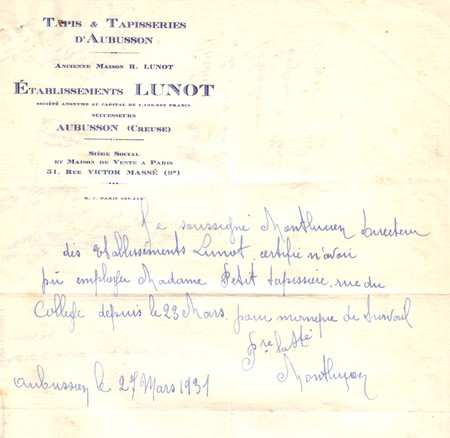 TAPIS & TAPISSERIES
D'AUBUSSON
ANCIENNE MAISON R. LUNOT
ÉTABLISSEMENTS LUNOT
SOCIÉTÉ ANONYME AU CAPITAL DE 1.100.000 FRANCS
SUCCESSEURS
AUBUSSON (CREUSE)
SIÈGE SOCIAL
ET MAISON DE VENTE A PARIS
51, RUE VICTOR MASSÉ (9e)
R. C. PARIS
Je soussigné Montluçon Directeur
des Etablissements Lunot, certifie n'avoir
pu employer Madame Petit tapissière, rue du
College depuis le 23 Mars pour manque de travail
Montluçon
Aubusson le 27 Mars 1931